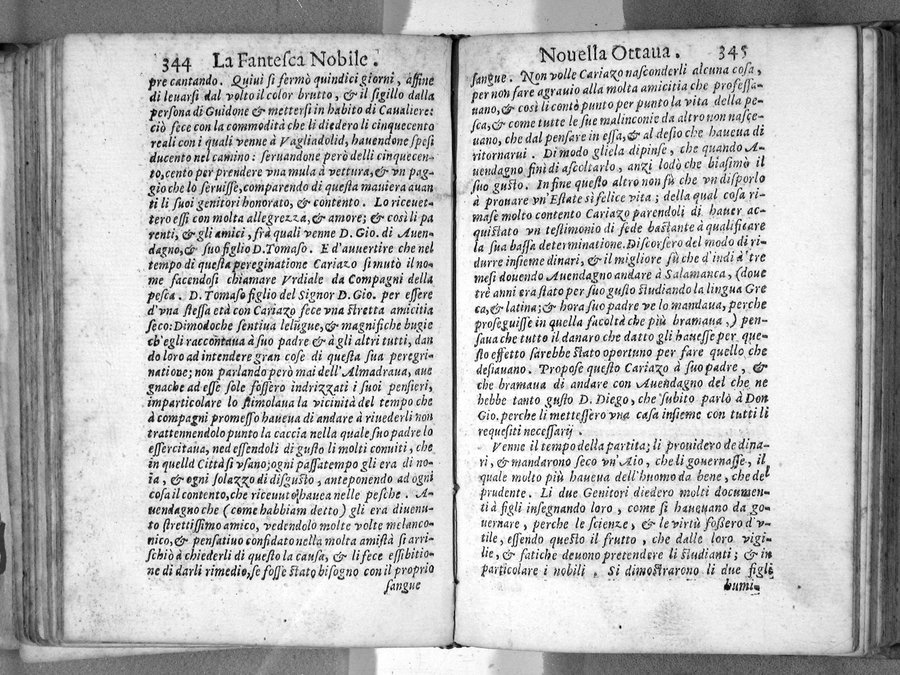 344 La Fantesca Nobile.
pre cantando. Quiui si fermò quindici giorni, affine
di leuarsi dal volto il color brutto, & il sigillo dalla
persona di Guidone & mettersi in habito di Caualiere:
ciò fece con la commodità che li diedero li cinquecento
reali con i quali venne à Vagliadolid, hauendone spesi
ducento nel camino: seruandone però delli cinquecen-
to, cento per prendere vna mula à vettura, & vn pag-
gio che lo seruisse, comparendo di questa maniera auan
ti li suoi genitori honorato, & contento. Lo riceuet-
tero essi con molta allegrezza, & amore; & così li pa
renti, & gli amici, frà quali venne D. Gio. di Auen-
dagno, & suo figlio D. Tomaso. E d'auuertire che nel
tempo di questa peregrinatione Cariazo si mutò il no-
me facendosi chiamare Vrdiale da Compagni della
pesca. D. Tomaso figlio del Signor D. Gio. per essere
d'vna stessa età con Cariazo fece vna stretta amicitia
seco: Dimodoche sentiua le lũgue, & magnifiche bugie
ch'egli raccontaua à suo padre & à gli altri tutti, dan
do loro ad intendere gran cose di questa sua peregri-
natione; non parlando però mai dell'Almadraua, aue
gnache ad esse sole fossero indrizzati i suoi pensieri,
imparticolare lo stimolaua la vicinità del tempo che
à compagni promesso haueua di andare à riuederli non
trattennendolo punto la caccia nella quale suo padre lo
essercitaua, ned essendoli di gusto li molti conuiti, che
in quella Città si vsano; ogni passatempo gli era di no-
ia, & ogni solazzo di disgusto, anteponendo ad ogni
cosa il contento, che riceuuto hauea nelle pesche. A-
uendagno che (come habbiam detto) gli era diuenu-
to strettissimo amico, vedendolo molte volte melanco-
nico, & pensatiuo confidato nella molta amistà si arri-
schiò à chiederli di questo la causa, & li fece essibitio-
ne di darli rimedio, se fosse stato bisogno con il proprio
sangue
Nouella Ottaua. 345
sangue. Non volle Cariazo nasconderli alcuna cosa,
per non fare agrauio alla molta amicitia che professa-
uano, & così li contò punto per punto la vita della pe-
sca, & come tutte le sue malinconie da altro non nasce-
uano, che dal pensare in essa, & al desio che haueua di
ritornarui. Di modo gliela dipinse, che quando A-
uendagno finì di ascoltarlo, anzi lodò che biasimò il
suo gusto. In fine questo altro non fù che vn disporlo
à prouare vn'Estate sì felice vita; della qual cosa ri-
mase molto contento Cariazo parendoli di hauer ac-
quistato vn testimonio di fede bastante à qualificare
la sua bassa determinatione. Discorsero del modo di ri-
durre insieme dinari, & il migliore fù che d'indi à tre
mesi douendo Auendagno andare à Salamanca, (doue
trè anni era stato per suo gusto studiando la lingua Gre
ca, & latina; & hora suo padre ve lo mandaua, perche
proseguisse in quella facoltà che più bramaua,) pen-
saua che tutto il danaro che datto gli hauesse per que-
sto effetto sarebbe stato oportuno per fare quello che
desiauano. Propose questo Cariazo à suo padre, &
che bramaua di andare con Auendagno del che ne
hebbe tanto gusto D. Diego, che subito parlò à Don
Gio. perche li mettessero vna casa insieme con tutti li
requesiti necessarij.
Venne il tempo della partita; li prouidero de dina-
ri, & mandarono seco vn'Aio, che li gouernasse, il
quale molto più haueua dell'huomo da bene, che del
prudente. Li due Genitori diedero molti documen-
ti à figli insegnando loro, come si haueuano da go-
uernare, perche le scienze, & le virtù foßero d'v-
tile, essendo questo il frutto, che dalle loro vigi-
lie, & fatiche deuono pretendere li studianti; & in
particolare i nobili. Si dimostrarono li due figli
humi-